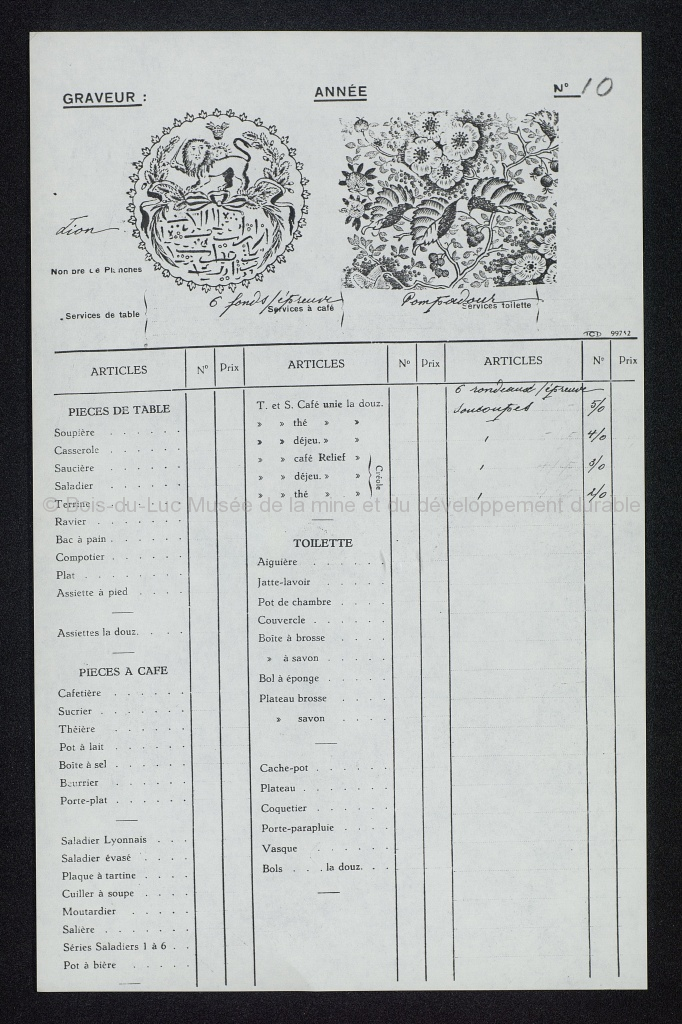 GRAVEUR :
ANNÉE
N° 10
Lion
Nombre de Planches
6 fonds/épreuve
Pompadour
Services de table
Services à café
Services toilette
TCD 99752
ARTICLES N° Prix ARTICLES N° Prix ARTICLES N° Prix
6 rondeaux/épreuve
PIECES DE TABLE
Soupière
Casserole
Saucière
Saladier
Terrine
Ravier
Bac à pain
Compotier
Plat
Assiette à pied
Assiettes la douz.
PIECES A CAFE
Cafetière
Sucrier
Théière
Pot à lait
Boîte à sel
Beurrier
Porte-plat
Saladier Lyonnais
Saladier évasé
Plaque à tartine
Cuiller à soupe
Moutardier
Salière
Séries Saladiers 1 à 6
Pot à bière
T. et S. Café unie la douz.
» » thé » »
» » déjeu. » »
» » café Relief »
» » déjeu. » »
» » thé » »
Créole
TOILETTE
Aiguière
Jatte-lavoir
Pot de chambre
Couvercle
Boîte à brosse
» à savon
Bol à éponge
Plateau brosse
» savon
Cache-pot
Plateau
Coquetier
Porte-parapluie
Vasque
Bols . . . la douz.
Soucoupes 5/0
" 4/0
" 3/0
" 2/0
© Bois-du-Luc Musée de la mine et du développement durable